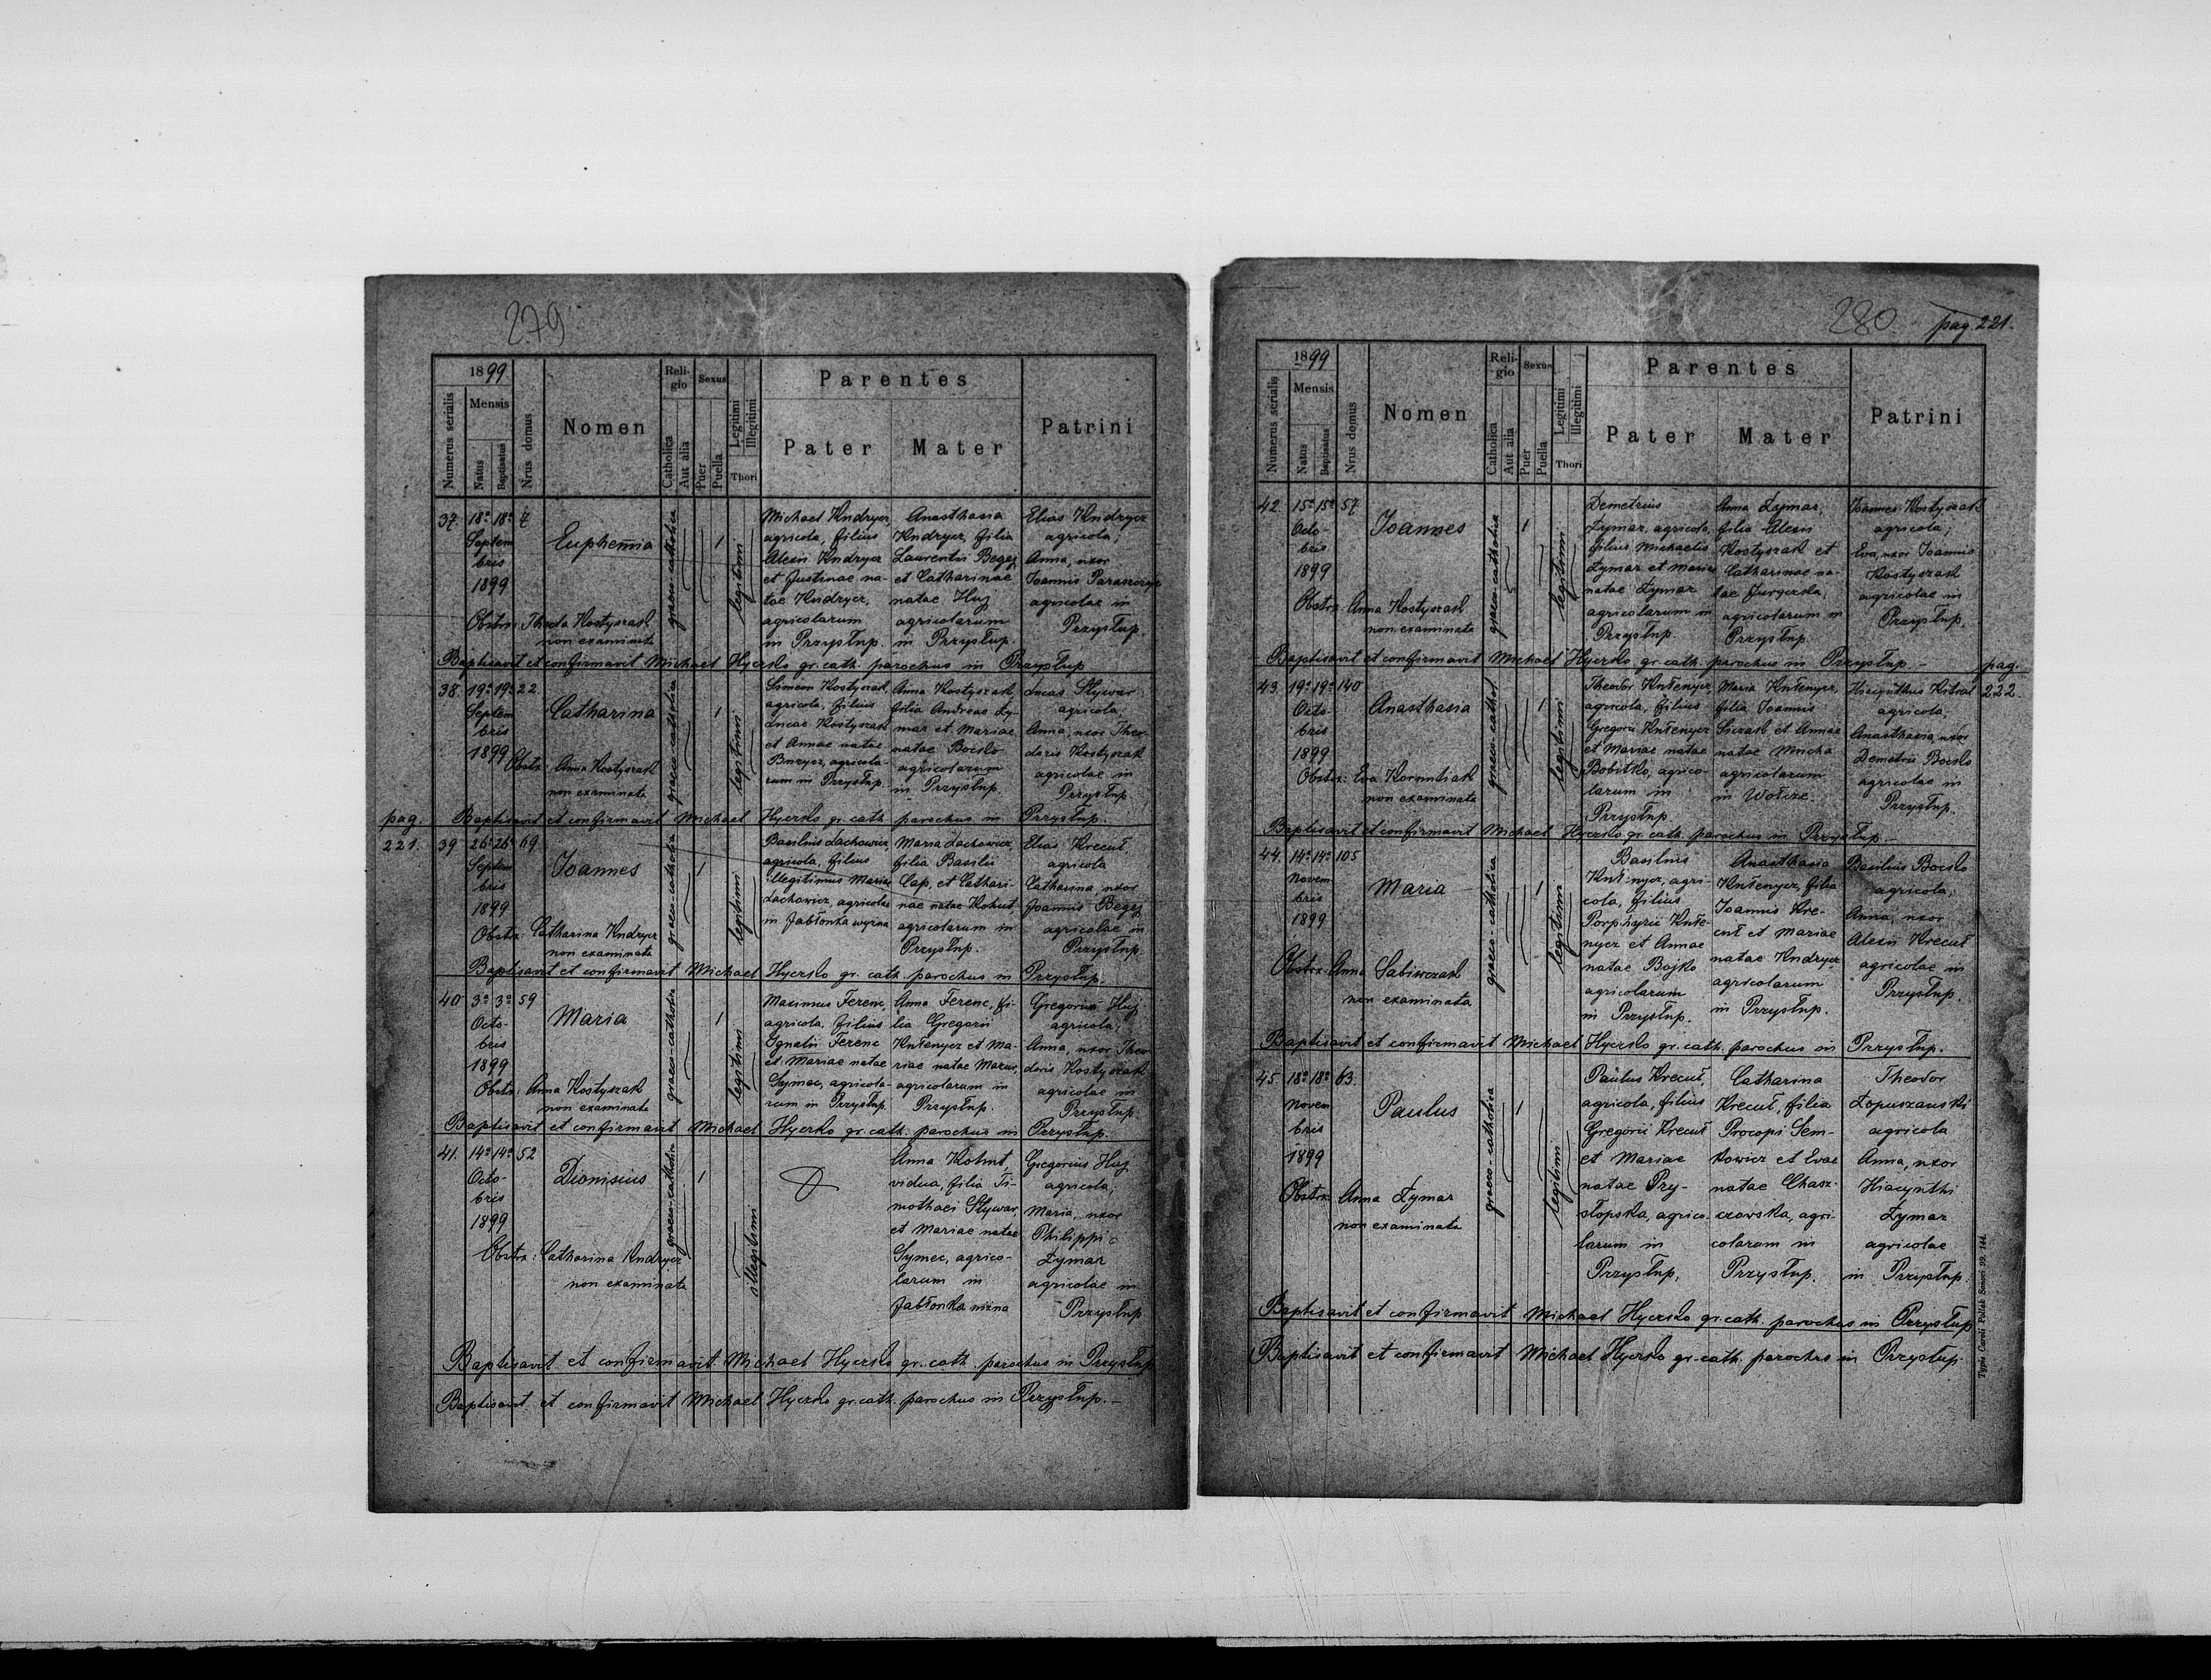 279
1899
Numerus serialis
Mensis
Natus
Baptisatus
Nrus domus
Nomen
Religio
Catholica
Aut alia
Sexus
Puer
Puella
Legitimi
Illegitimi
Thori
Parentes
Pater
Mater
Patrini
37. 18ª 18ª 7
Septem
bris
1899
Euphemia
graeco-catholica
1
legitimi
Obstr: Thecla Kostyszak
non examinata
Michael Kndrycz,
agricola, filius
Alexii Kndrycz
et Justinae na-
tae Kndrycz,
agricolarum
in Przysłup.
Anasthasia
Kndrycz, filia
Laurentii Begej
et Catharinae
natae Huj
agricolarum
in Przysłup.
Elias Kndrycz
agricola;
Anna, uxor
Joannis
agricolae in
Przysłup.
Baptisavit et confirmavit Michael Hyczko gr. cath. parochus in Przysłup
38. 19ª 19ª 22
Septem
bris
1899
Catharina
graeco-catholica
1
legitimi
Obstr: Anna Kostyszak
non examinata
Simeon Kostyszak,
agricola, filius
Lucae Kostyszak
et Annae natae
agricola-
rum in Przysłup.
Anna Kostyszak,
filia Andreae Ży-
mar et Mariae
natae Boćko
agricolarum
in Przysłup.
Lucas Sływar
agricola;
Anna, uxor Theo-
doris Kostyszak
agricolae in
Przysłup.
pag. Baptisavit et confirmavit Michael Hyczko gr. cath. parochus in Przysłup.
221. 39 26ª 26ª 69
Septem
bris
1899
Joannes
graeco-catholica
1
legitimi
Obstr: Catharina Kndrycz
non examinata
Basilius Lachowicz,
agricola, filius
illegitimus Mariae
Lachowicz, agricolae
in Jabłonka wyżna
Maria Lachowicz,
filia Basilii
Cap, et Cathari-
nae natae Kohut,
agricolarum in
Przysłup.
Elias Krecuł,
agricola
Catharina, uxor
Joannis Begej
agricolae in
Przysłup.
Baptisavit et confirmavit Michael Hyczko gr. cath. parochus in Przysłup.
40 3ª 3ª 59
Octo-
bris
1899
Maria
graeco-catholica
1
legitimi
Obstr: Anna Kostyszak
non examinata
Maximus Ferenc,
agricola, filius
Ignatii Ferenc
et Mariae natae
Symec, agricola-
rum in Przysłup.
Anna Ferenc, fi-
lia Gregorii
Knłenycz et Ma-
riae natae Mazur,
agricolarum in
Przysłup.
Gregorius Huj
agricola;
Anna, uxor Theo-
doris Kostyszak
agricolae in
Przysłup.
Baptisavit et confirmavit Michael Hyczko gr. cath. parochus in Przysłup.
41. 14ª 14ª 52
Octo-
bris
1899
Dionisius
graeco-catholica
1
illegitimi
Obstr: Catharina Kndrycz
non examinata
Anna Kohut,
vidua, filia Ti-
mothaei Sływar,
et Mariae natae
Symec, agrico-
larum in
Jabłonka niżna
Gregorius Huj
agricola;
Maria, uxor
Philippi
Żymar
agricolae in
Przysłup
Baptisavit et confirmavit Michael Hyczko gr. cath. parochus in Przysłup
Baptisavit et confirmavit Michael Hyczko gr. cath. parochus in Przysłup.-
280 pag. 221.
1899
Numerus serialis
Mensis
Natus
Baptisatus
Nrus domus
Nomen
Religio
Catholica
Aut alia
Sexus
Puer
Puella
Legitimi
Illegitimi
Thori
Parentes
Pater
Mater
Patrini
42. 15ª 15ª 57
Octo-
bris
1899
Joannes
graeco-catholica
1
legitimi
Obstr: Anna Kostyszak
non examinata
Demetrius
Żymar, agricola,
filius Michaelis
Żymar et Mariae
natae Żymar
agricolarum in
Przysłup.
Anna Żymar,
filia Alexii
Kostyszak et
Catharinae na-
tae
agricolarum in
Przysłup.
Joannes Kostyszak
agricola;
Eva, uxor Joannis
Kostyszak
agricolae in
Przysłup.
Baptisavit et confirmavit Michael Hyczko gr. cath. parochus in Przysłup.- pag.
43. 19ª 19ª 140
Octo-
bris
1899
Anasthasia
graeco-cathol.
1
legitimi
Obstr: Eva
non examinata
Theodor Knłenycz,
agricola, filius
Gregorii Knłenycz
et Mariae natae
Bobitko, agrico-
larum in
Przysłup.
Maria Knłenycz,
filia Joannis
et Annae
natae Micha
agricolarum
in Wołcze.
Hiacynthus
agricola;
Anasthasia, uxor
Demetrii Boćko
agricolae in
Przysłup.
222.
Baptisavit et confirmavit Michael Hyczko gr. cath. parochus in Przysłup.-
44. 14ª 14ª 105
Novem
bris
1899
Maria
graeco-catholica
1
legitimi
Obstr: Anna
non examinata
Basilius
Knłenycz, agri-
cola, filius
Porphyrii Knłe-
nycz et Annae
natae Bojko
agricolarum
in Przysłup.
Anasthasia
Knłenycz, filia
Joannis Kre-
cuł et Mariae
natae Kndrycz
agricolarum
in Przysłup.
Basilius Boćko
agricola;
Anna, uxor
Alexii Krecuł
agricolae in
Przysłup.
Baptisavit et confirmavit Michael Hyczko gr. cath. parochus in Przysłup.
45. 18ª 18ª 63.
Novem
bris
1899
Paulus
graeco-catholica
1
legitimi
Obstr: Anna Żymar
non examinata
Paulus Krecuł,
agricola, filius
Gregorii Krecuł
et Mariae
natae Pry-
słopska, agrico-
larum in
Przysłup.
Catharina
Krecuł, filia
Procopi Sem-
kowicz et Evae
natae Chasz-
czowska, agri-
colarum in
Przysłup.
Theodor
Łopuszanski
agricola
Anna, uxor
Hiacynthi
Żymar
agricolae
in Przysłup.
Baptisavit et confirmavit Michael Hyczko gr. cath. parochus in Przysłup
Baptisavit et confirmavit Michael Hyczko gr. cath. parochus in Przysłup.
Typis Caroli Pollak Sanoci 99. 144.